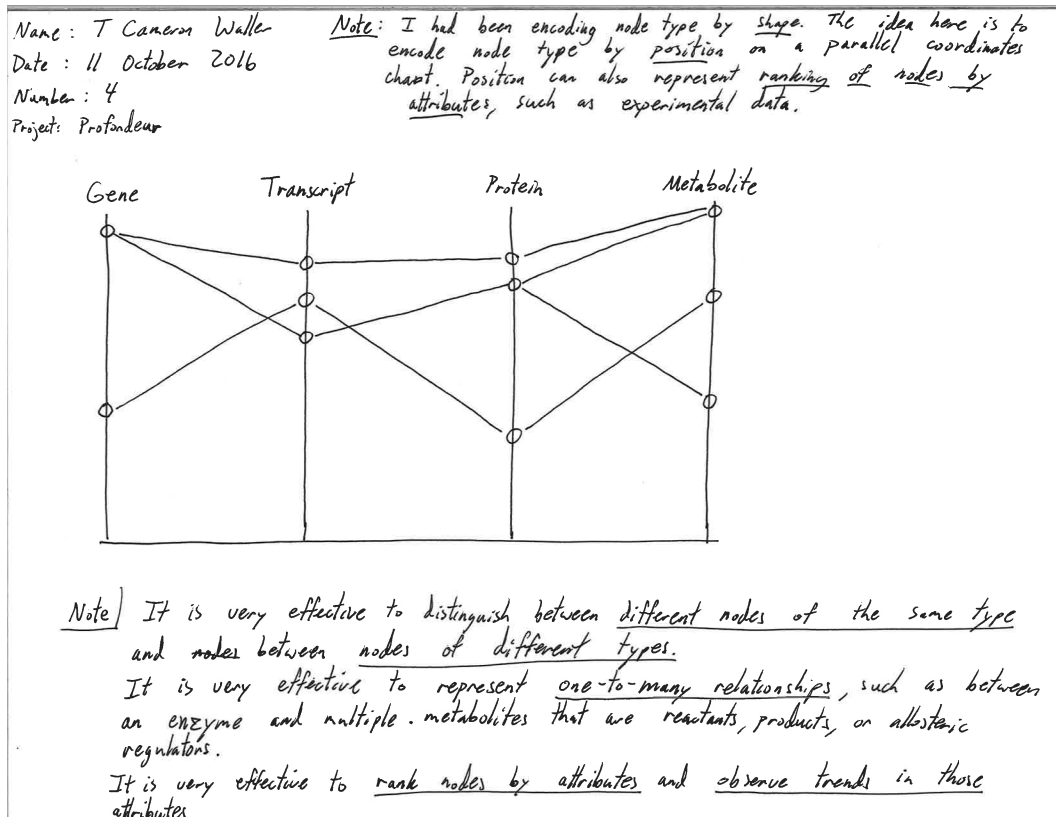 Name: T Cameron Waller
Date: 11 October 2016
Number: 4
Project: Profondeur
Note: I had been encoding node type by shape. The idea here is to
encode node type by position on a parallel coordinates
chart. Position can also represent ranking of nodes by
attributes, such as experimental data.
Gene
Transcript
Protein
Metabolite
Note) It is very effective to distinguish between different nodes of the same type
and nodes between nodes of different types.
It is very effective to represent one-to-many relationships, such as between
an enzyme and multiple metabolites that are reactants, products, or allosteric
regulators.
It is very effective to rank nodes by attributes and observe trends in those
attributes